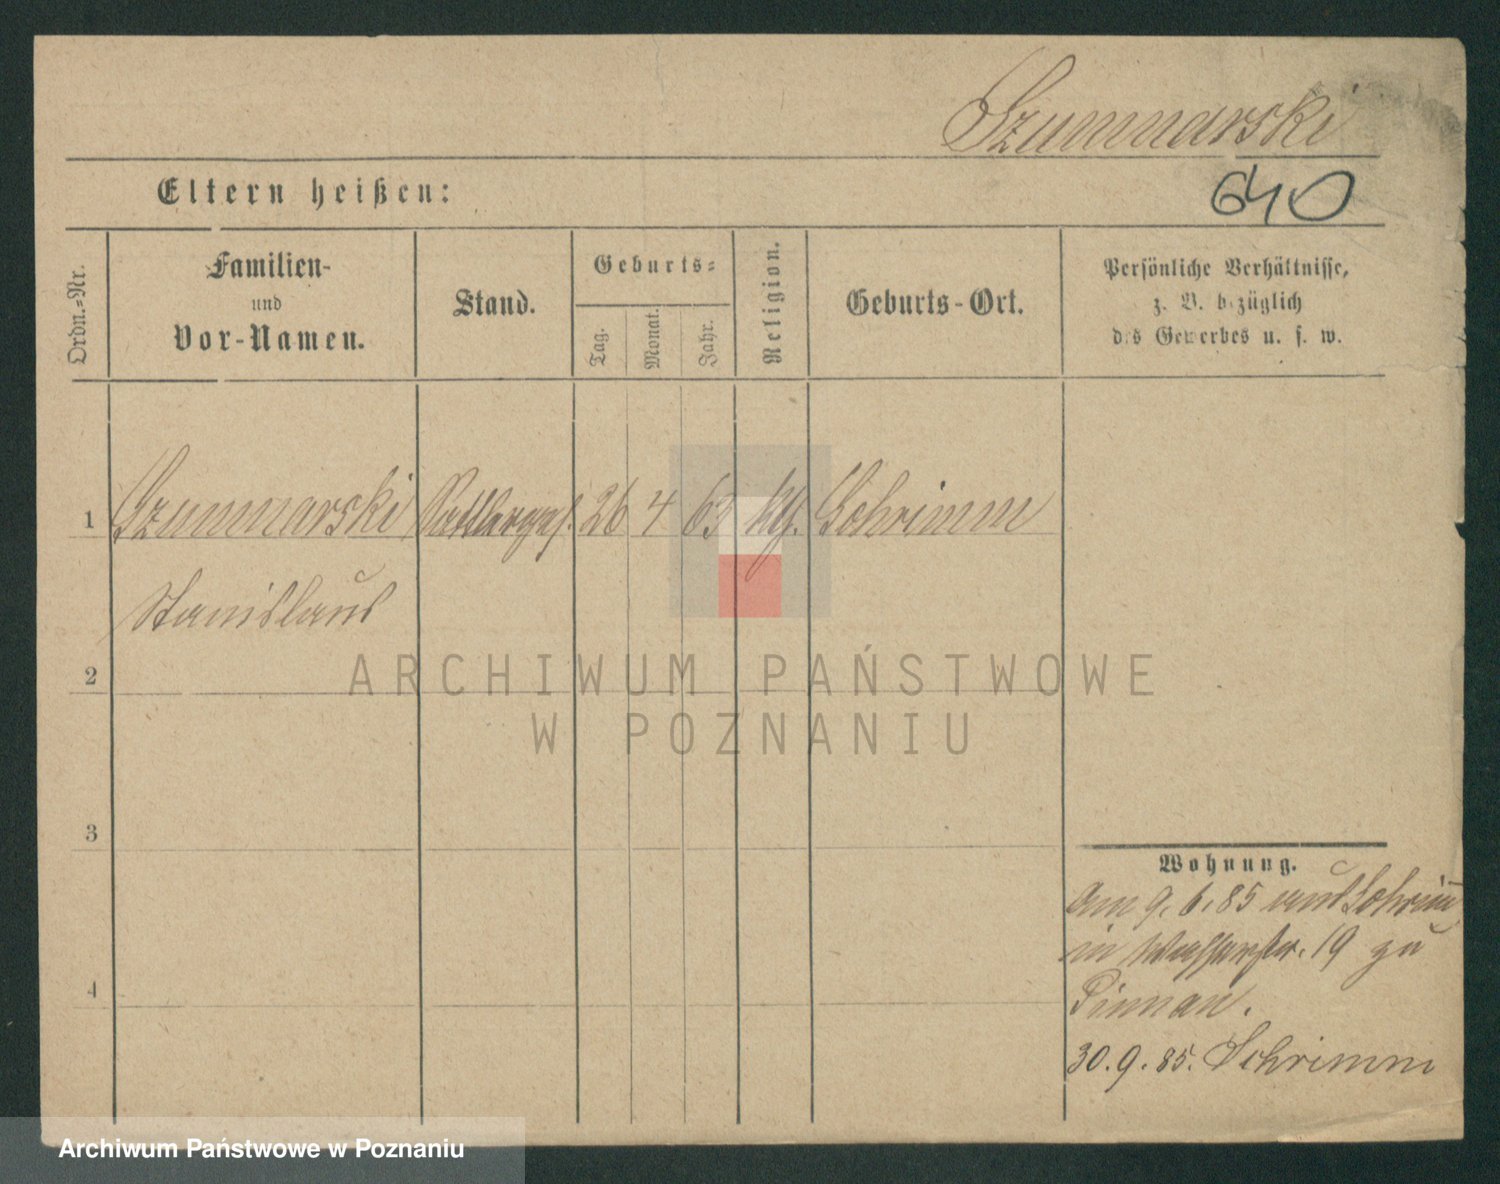 Szummarski
640
Eltern heißen:
Ordn.-Nr.
Familien-
und
Vor-Namen.
Stand.
Geburts-
Tag.
Monat.
Jahr.
Religion.
Geburts-Ort.
Persönliche Verhältnisse,
z. B. bezüglich
des Gewerbes u. s. w.
1 Szummarski Sattlerges. 26 4 63 kth. Schrimm
Stanislaus
2
3
4
Wohnung.
Am 9.6.85 aus Schrimm
in Wasserstr. 19 zu
30.9.85. Schrimm
ARCHIWUM PAŃSTWOWE
W POZNANIU
Archiwum Państwowe w Poznaniu